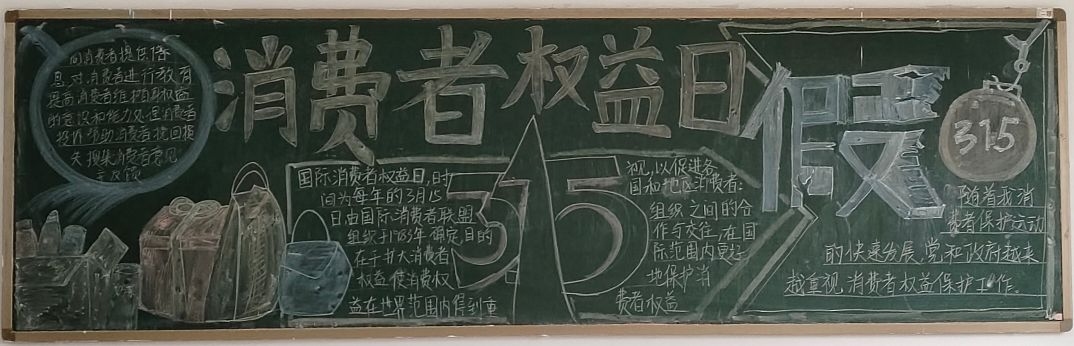 消费者权益日
向消费者提供信
息,对消费者进行教育
提高消费者维护自身权益
的意识和能力处理消费者
投诉帮助消费者挽回损
失搜集消费者意见
并反馈
国际消费者权益日,时
间为每年的3月15
日由国际消费者联盟
组织于1983年确定,目的
在于扩大消费者
权益使消费权
益在世界范围内得到重
315
视,以促进各
国和地区消费者
组织之间的合
作与交往,在国
际范围内更好
地保护消
费者权益
假
315
随着我消
费者保护运动
的快速发展,党和政府越来
越重视消费者权益保护工作。